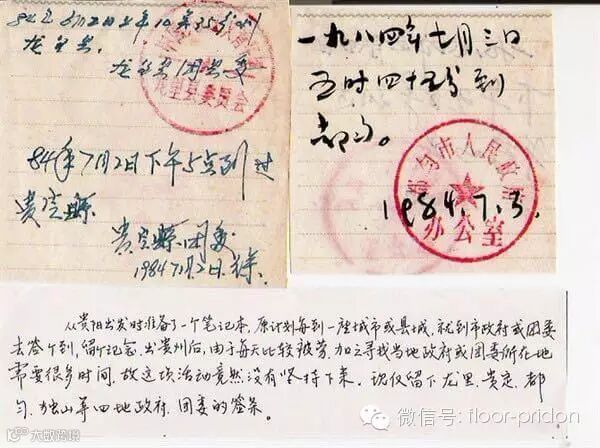 龙里县
龙里县团县委
龙里县委员会
84年7月2日下午5点到过
贵定县
贵定县团委
1984 7月2日
一九八四年七月三日
五时四十五分到
都匀。
都匀市人民政府
办公室
1984.7.3.
从贵阳出发时准备了一个笔记本,原计划每到一座城市或县城,就到市政府或团委
去签个到,留个记念,出贵州后,由于每天比较疲劳,加之寻找当地政府或团委所在地
需要很多时间,故这项活动竟然没有坚持下来。现仅留下龙里、贵定、都
匀、独山等四地政府、团委的签条。
微信号: floor-pridon
大数跨境